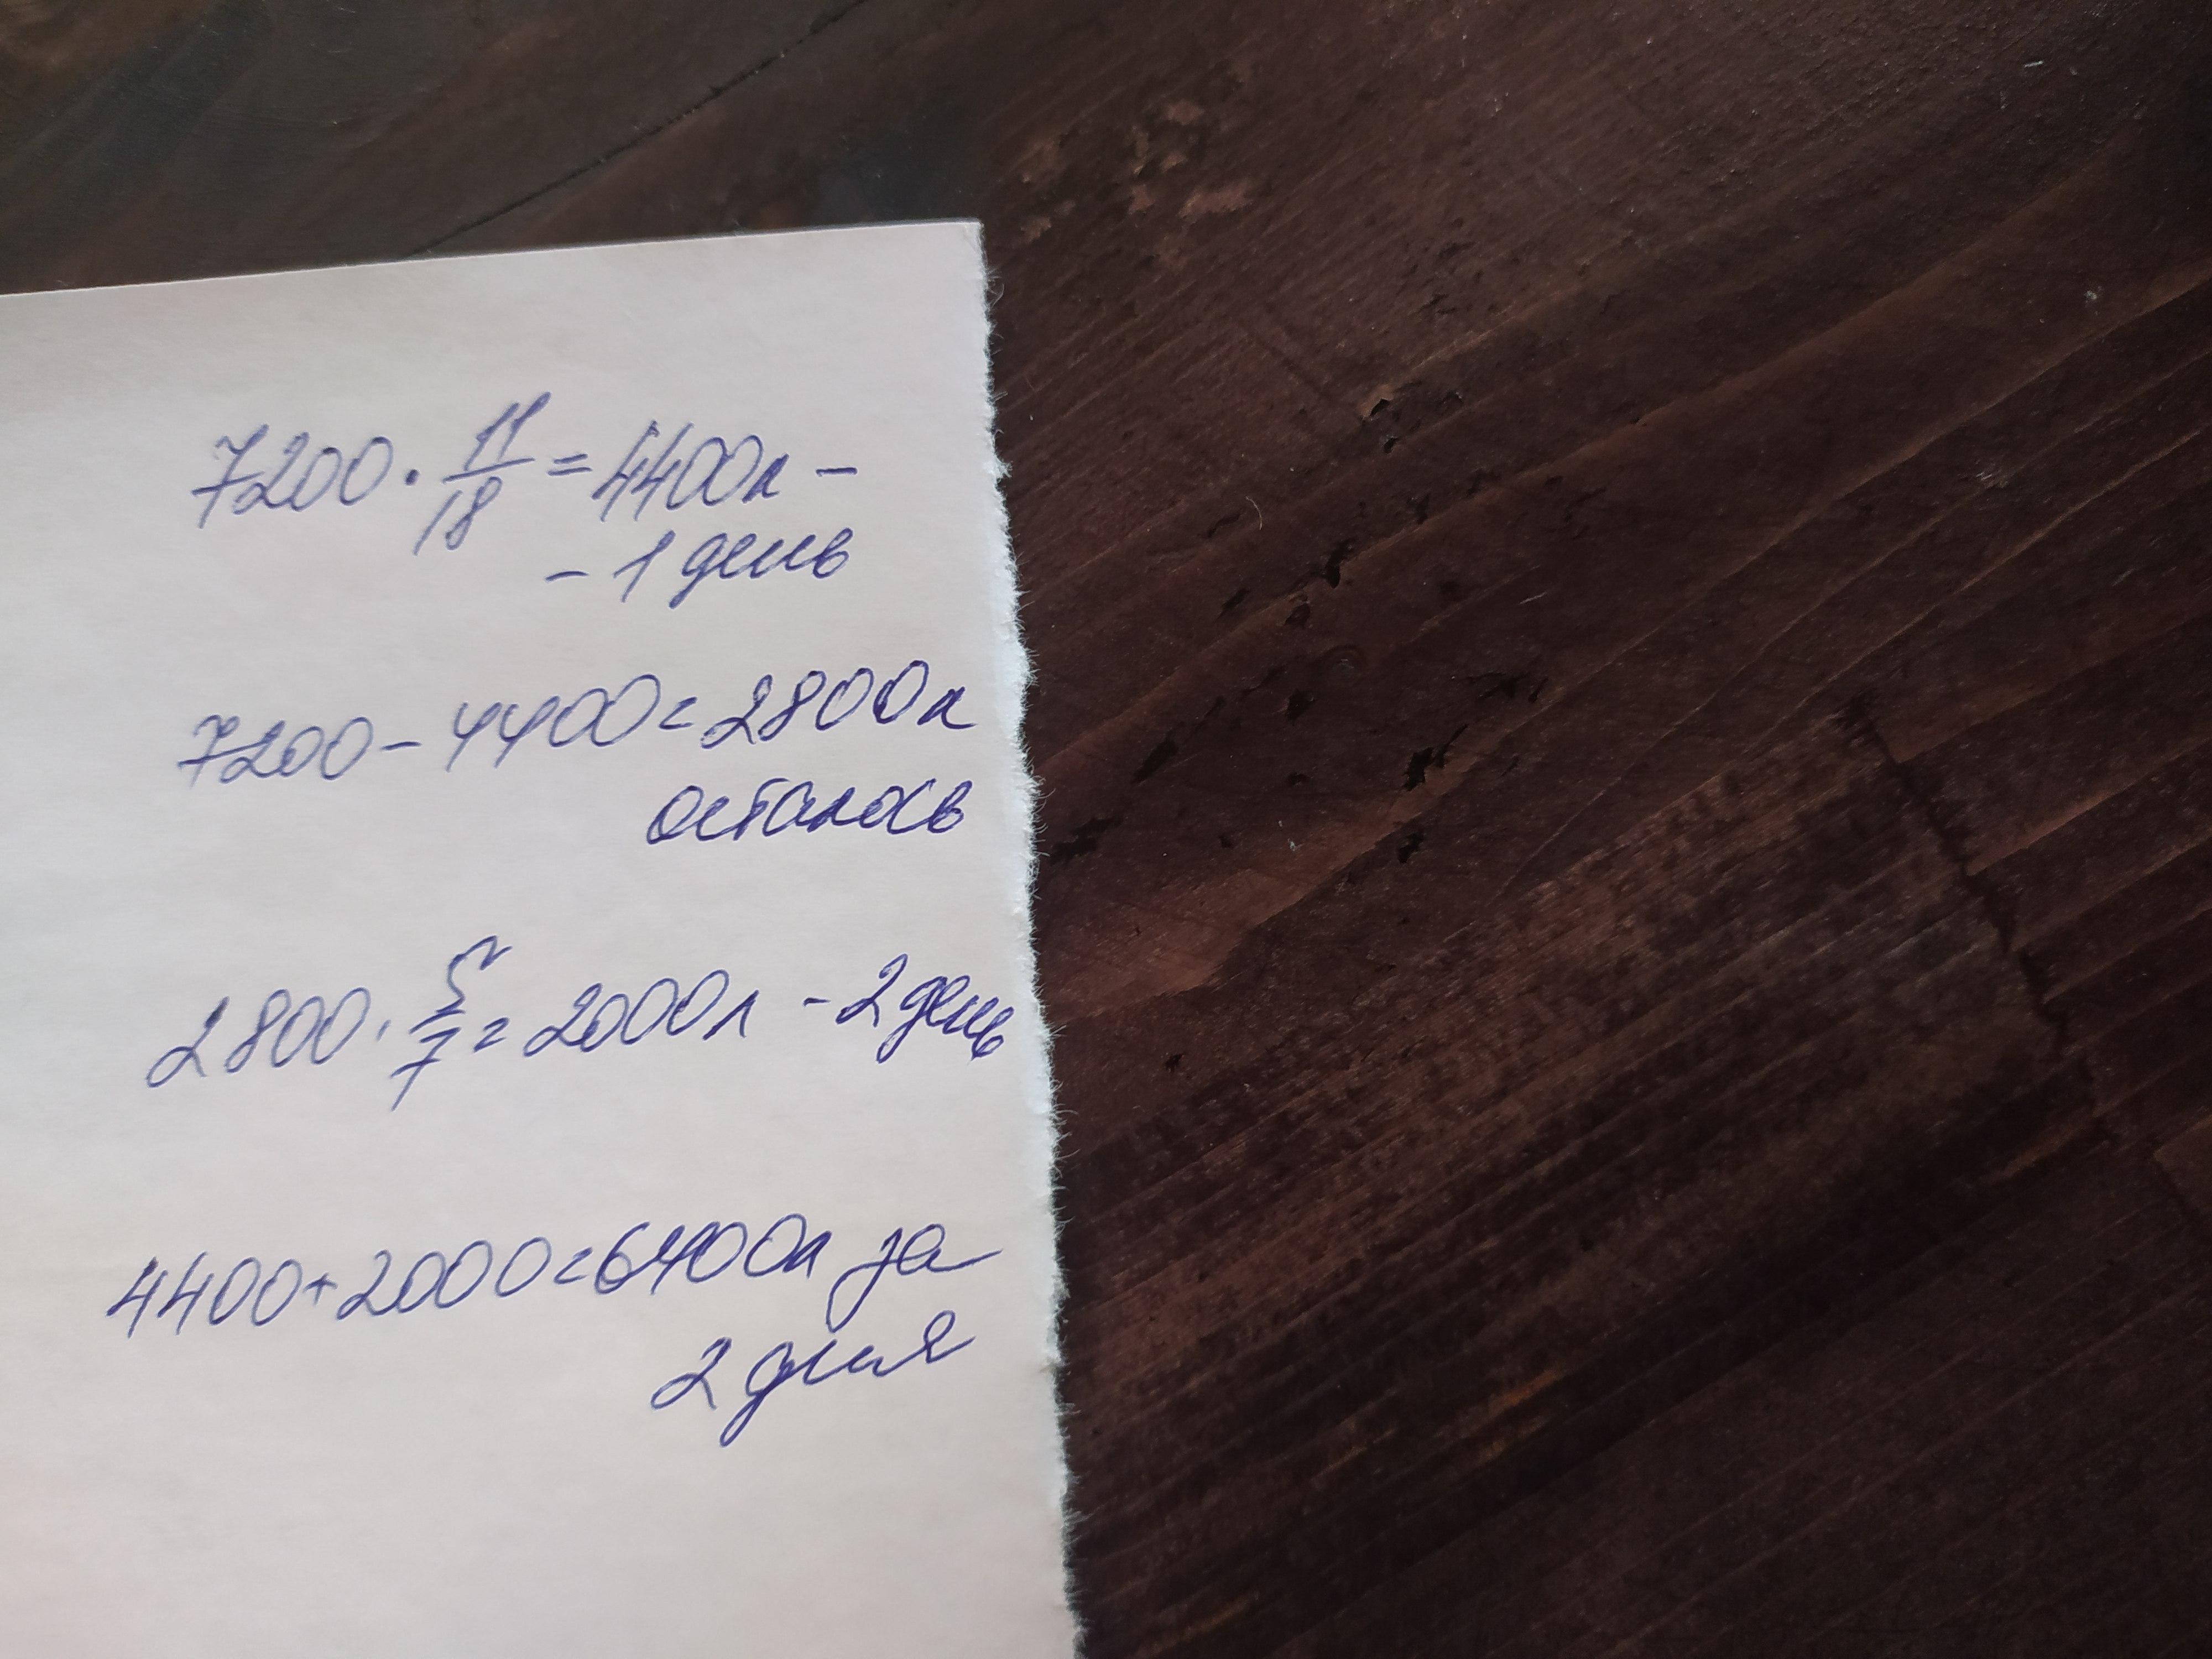 7200 · 11/18 = 4400л –
– 1 день
7200 – 4400 = 2800л
осталось
2800 · 5/7 = 2000л – 2 день
4400 + 2000 = 6400л за
2 дня